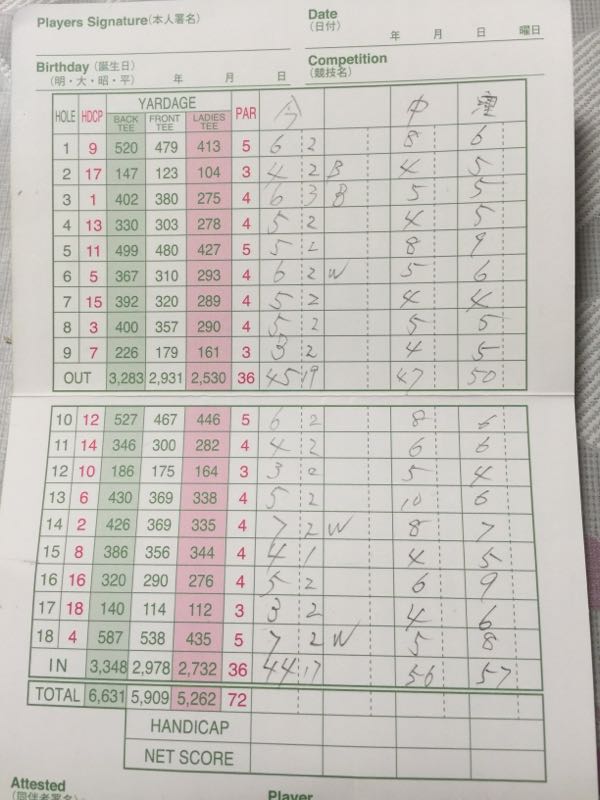 Players Signature(本人署名)
Date
(日付)
年 月 日 曜日
Birthday (誕生日)
(明・大・昭・平) 年 月 日
Competition
(競技名)
HOLE HDCP YARDAGE PAR 今 中
BACK TEE FRONT TEE LADIES TEE
1 9 520 479 413 5 6 2 8 6
2 17 147 123 104 3 4 2 B 4 5
3 1 402 380 275 4 6 3 B 5 5
4 13 330 303 278 4 5 2 4 5
5 11 499 480 427 5 5 2 8 9
6 5 367 310 293 4 6 2 W 5 6
7 15 392 320 289 4 5 2 4 4
8 3 400 357 290 4 5 2 5 5
9 7 226 179 161 3 3 2 4 5
OUT 3,283 2,931 2,530 36 45 19 47 50
10 12 527 467 446 5 6 2 8 6
11 14 346 300 282 4 4 2 6 6
12 10 186 175 164 3 3 2 5 4
13 6 430 369 338 4 5 2 10 6
14 2 426 369 335 4 7 2 W 8 7
15 8 386 356 344 4 4 1 4 5
16 16 320 290 276 4 5 2 6 9
17 18 140 114 112 3 3 2 4 6
18 4 587 538 435 5 7 2 W 5 8
IN 3,348 2,978 2,732 36 44 17 56 57
TOTAL 6,631 5,909 5,262 72
HANDICAP
NET SCORE
Attested
(同伴者署名)
Player